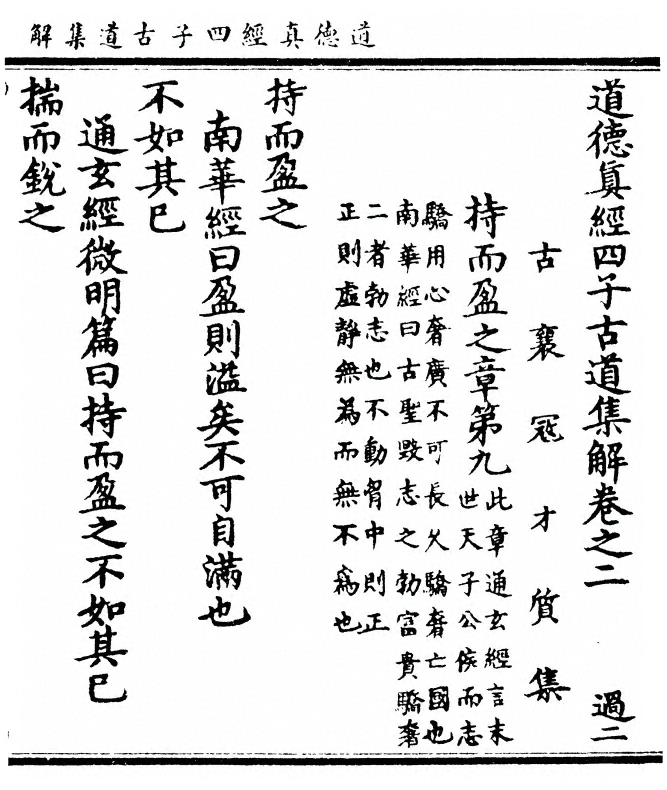 道德真經四子古道集解
道德眞經四子古道集解卷之二　過二
古襄寇才質集
持而盈之章第九
此章通玄經言末
世天子公侯而志
驕用心奢廣不可長久驕奢亡國也
南華經曰古聖毀志之勃富貴驕奢
二者勃志也不動胷中則正
正則虛靜無為而無不為也
持而盈之
南華經曰盈則溢矣不可自滿也
不如其已
通玄經微明篇曰持而盈之不如其已
揣而銳之